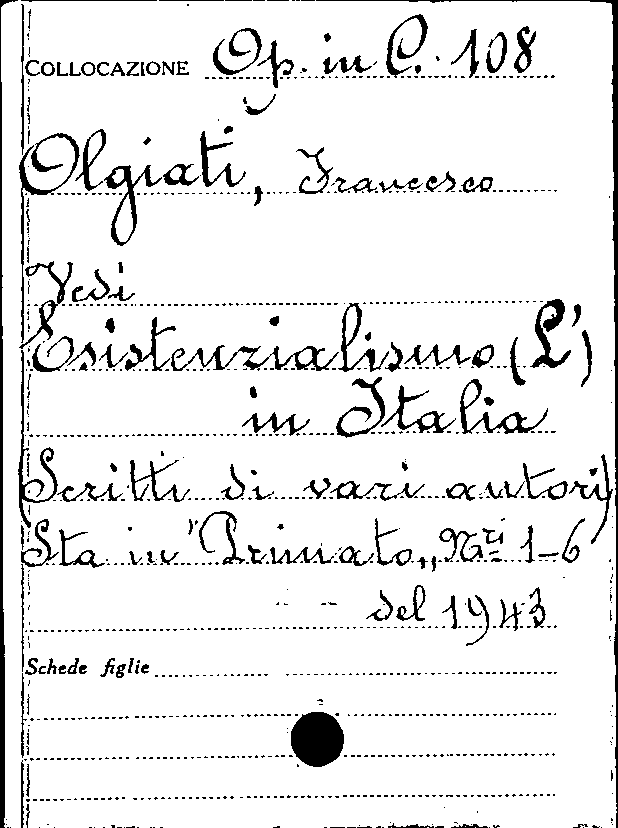 COLLOCAZIONE Op. in C. 108
Olgiati, Francesco
Vedi
Esistenzialismo (L')
in Italia
(Scritti di vari autori)
Sta in "Primato„ Nri 1-6
del 1943
Schede figlie